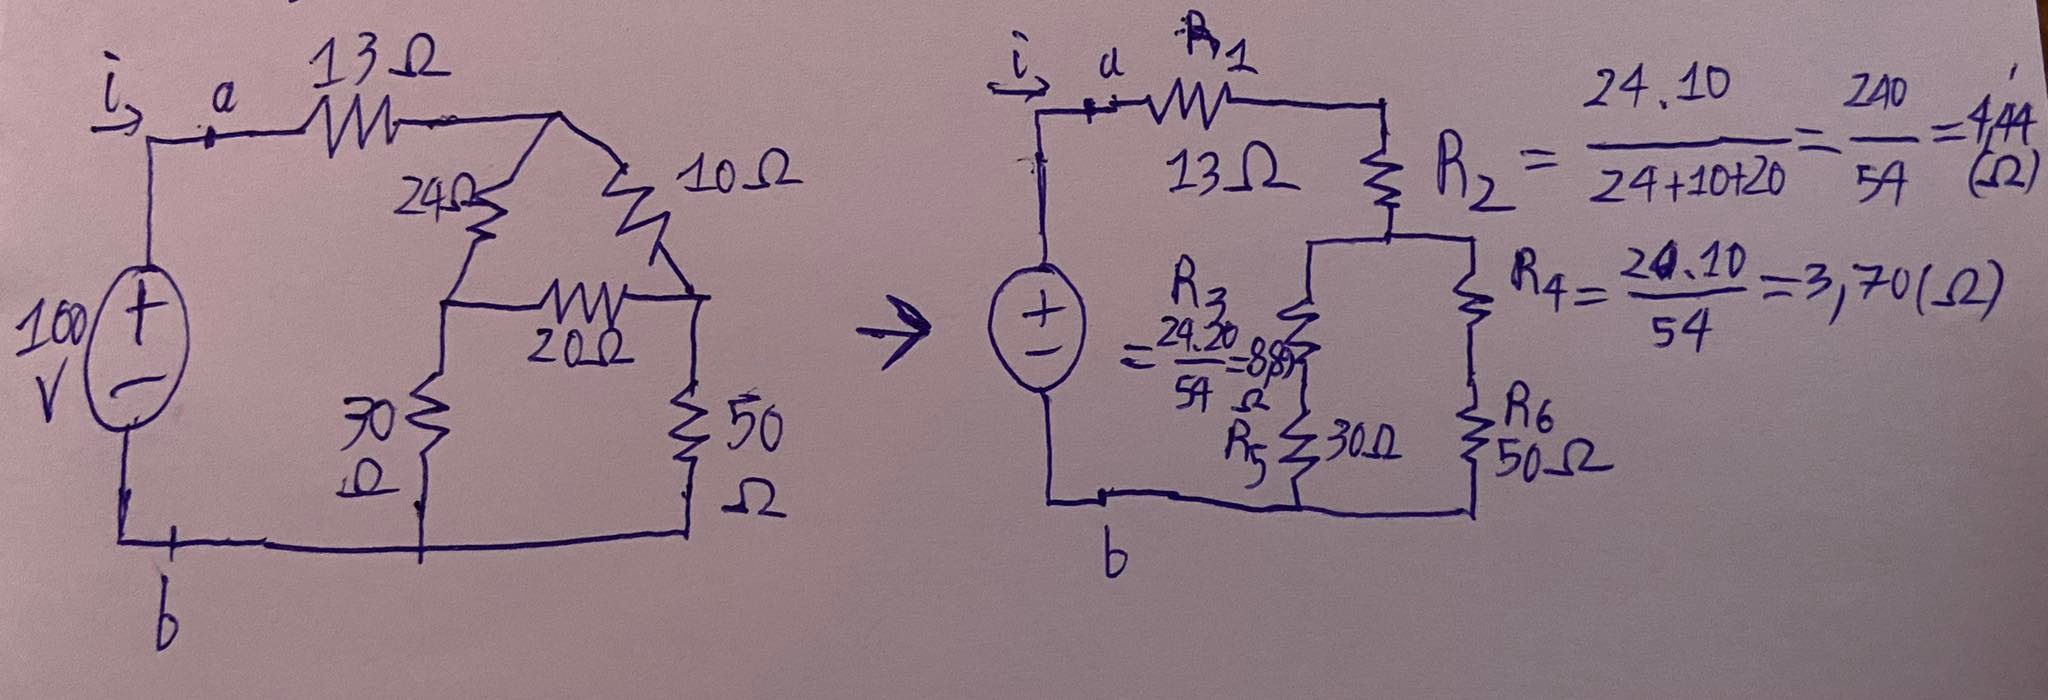 i
a
13Ω
24Ω
10Ω
20Ω
100
V
+
−
30
Ω
50
Ω
b
→
i
a
R1
13Ω
R2 = 24.10 / 24+10+20 = 240 / 54 = 4,44
(Ω)
+
−
R3
= 24.20 / 54 = 8,89
Ω
R4 = 20.10 / 54 = 3,70(Ω)
R5 30Ω
R6
50Ω
b